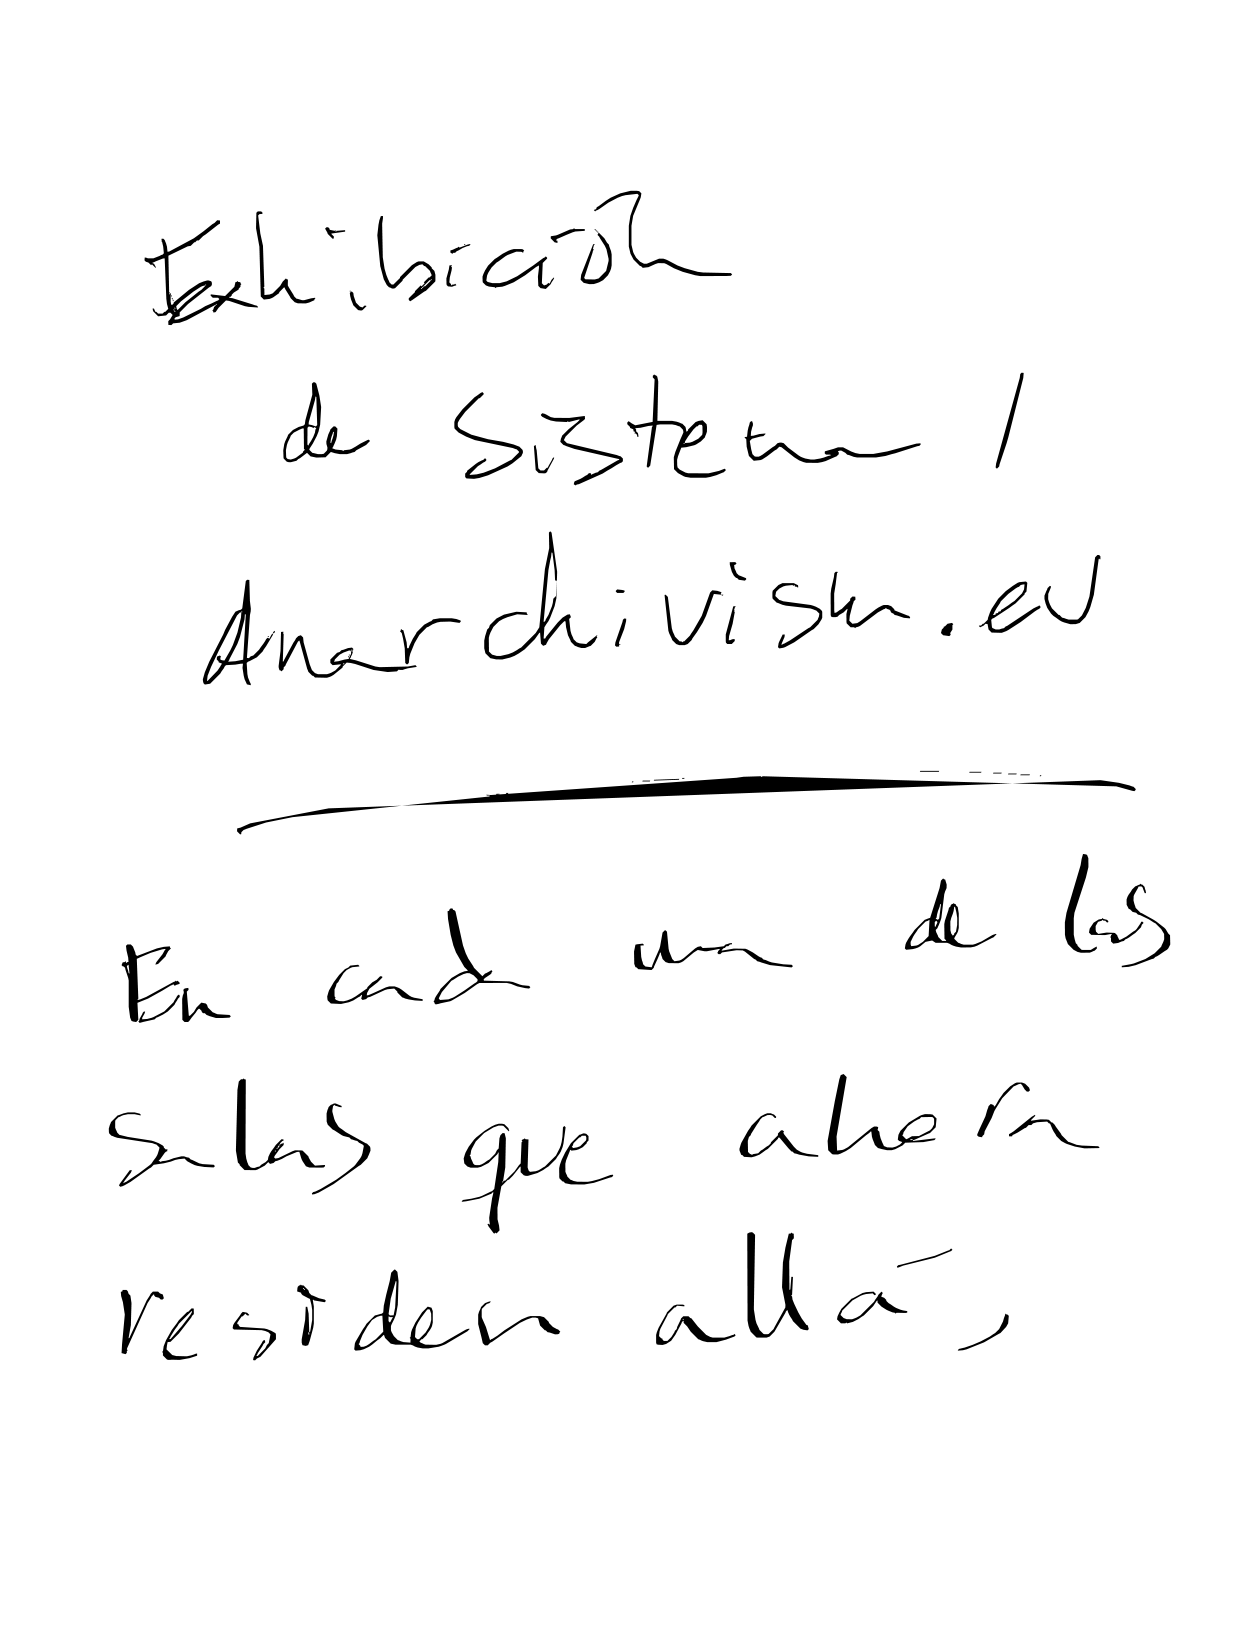 Exhibición
de sistema /
Anarchivism.eu
En cada una de las
salas que ahora
residen allá,